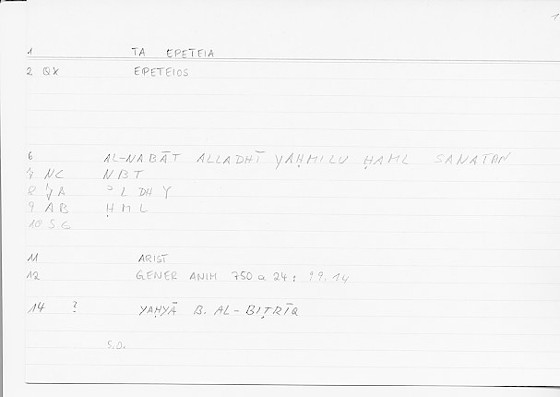 1
1 TA EPETEIA
2 QX EPETEIOS
6 AL-NABĀT ALLADHĪ YAḤMILU ḤAML SANATAN
7 NC NBT
8 YA ʾLDHY
9 AB ḤML
10 S.E
11 ARIST
12 GENER ANIM 750 a 24; 99.14
14 ? YAḤYĀ B. AL-BIṬRĪQ
S.O.